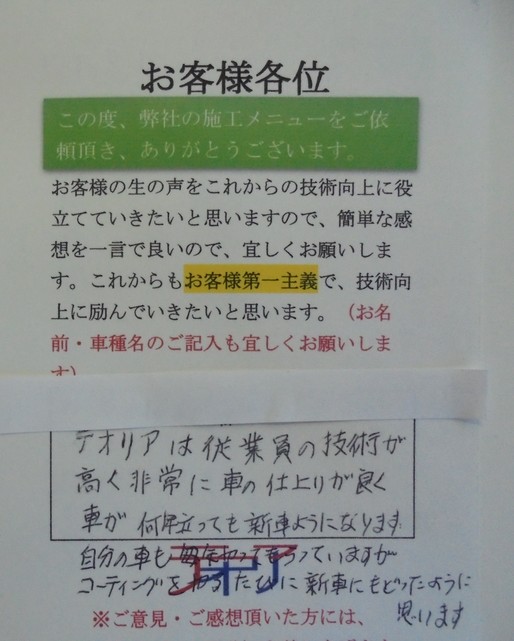 お客様各位
この度、弊社の施工メニューをご依
頼頂き、ありがとうございます。
お客様の生の声をこれからの技術向上に役
立てていきたいと思いますので、簡単な感
想を一言で良いので、宜しくお願いしま
す。これからもお客様第一主義で、技術向
上に励んでいきたいと思います。（お名
前・車種名のご記入も宜しくお願いしま
す）
テオリアは従業員の技術が
高く非常に車の仕上りが良く
車が何年立っても新車ようになります
自分の車も毎年やってもらっていますが
コーティングをやるたびに新車にもどったように
思います
テオリア
※ご意見・ご感想頂いた方には、